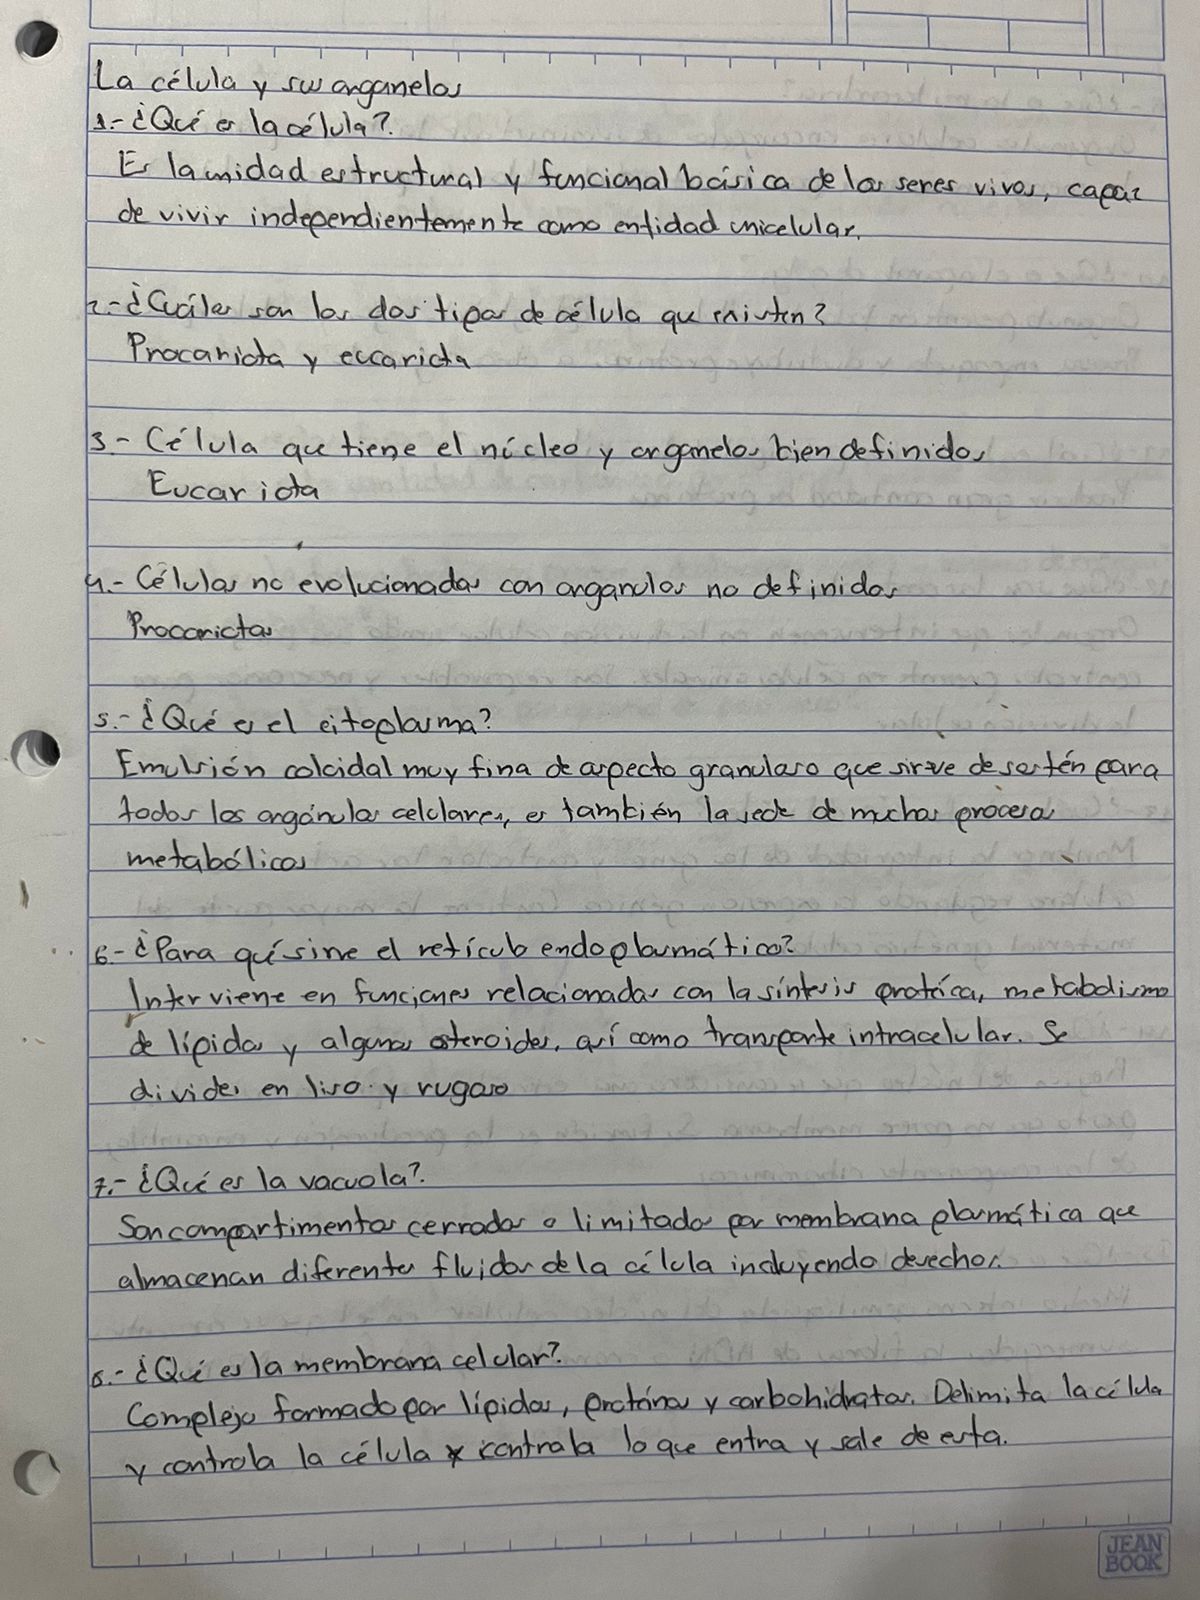 La célula y sus organelos
1.- ¿Qué es la célula?.
Es la unidad estructural y funcional básica de los seres vivos, capaz
de vivir independientemente como entidad unicelular.
2.- ¿Cuáles son los dos tipos de célula que existen?
Procariota y eucariota
3.- Célula que tiene el núcleo y organelos bien definidos
Eucariota
4.- Células no evolucionadas con organulos no definidos
Procariotas
5.- ¿Qué es el citoplasma?
Emulsión coloidal muy fina de aspecto granuloso que sirve de sostén para
todos los orgánulos celulares, es también la sede de muchos procesos
metabólicos
6.- ¿Para qué sirve el retículo endoplasmático?
Interviene en funciones relacionadas con la síntesis protéica, metabolismo
de lípidos y algunos esteroides, así como transporte intracelular. Se
divides en liso y rugoso
7.- ¿Qué es la vacuola?.
Son compartimentos cerrados o limitados por membrana plasmática que
almacenan diferentes fluidos de la célula incluyendo desechos.
8.- ¿Qué es la membrana celular?.
Complejo formado por lípidos, proteínas y carbohidratos. Delimita la célula
y controla la célula y controla lo que entra y sale de esta.
JEAN
BOOK